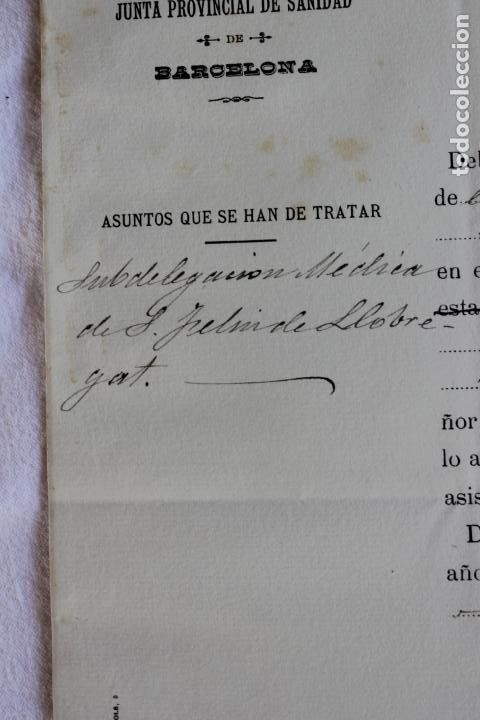 JUNTA PROVINCIAL DE SANIDAD
DE
BARCELONA
ASUNTOS QUE SE HAN DE TRATAR
Subdelegacion Médica
de S. Feliu de Llobre-
gat.
Deb
de
en e
esta
ñor
lo a
asis
D
año
todocoleccion.net